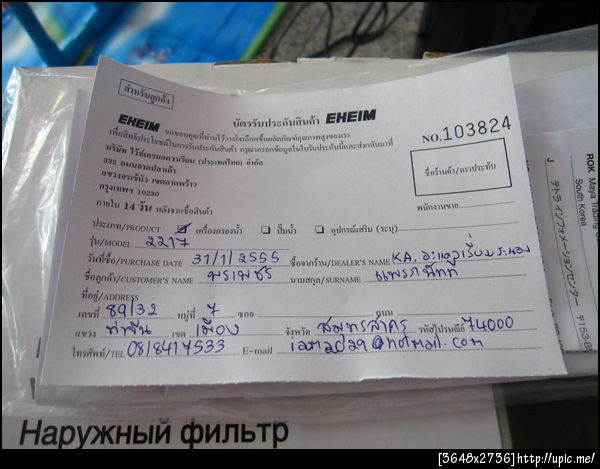 สำหรับลูกค้า
บัตรรับประกันสินค้า EHEIM
EHEIM ขอขอบคุณที่ท่านไว้วางใจเลือกซื้อผลิตภัณฑ์คุณภาพสูงของเรา
เพื่อสิทธิประโยชน์ในการรับประกันสินค้า กรุณากรอกข้อมูลในใบรับประกันนี้และส่งกลับมาที่
NO.103824
บริษัท ไวท์เครนอควาเรียม (ประเทศไทย) จำกัด
332 ถนนลาดปลาเค้า
แขวงจรเข้บัว เขตลาดพร้าว
กรุงเทพฯ 10230
ชื่อร้านค้า/ตราประทับ
ภายใน 14 วัน หลังจากซื้อสินค้า
พนักงานขาย
ประเภท/PRODUCT เครื่องกรองน้ำ ปั๊มน้ำ อุปกรณ์เสริม (ระบุ)
รุ่น/MODEL 2217
วันที่ซื้อ/PURCHASE DATE 31/1/2555 ชื่อจากร้าน/DEALER'S NAME KA.
ชื่อลูกค้า/CUSTOMER'S NAME พรเพชร นามสกุล/SURNAME
ที่อยู่/ADDRESS
เลขที่ 89/32 หมู่ที่ 7 ซอย ถนน
แขวง ท่าจีน เขต เมือง จังหวัด สมุทรสาคร รหัสไปรษณีย์ 74000
โทรศัพท์/TEL 0818417533 E-mail @hotmail.com
ROK Maya Trading
South Korea
J テトラインフォメーションセンター
Наружный фильтр
[3648x2736]http://upic.me/